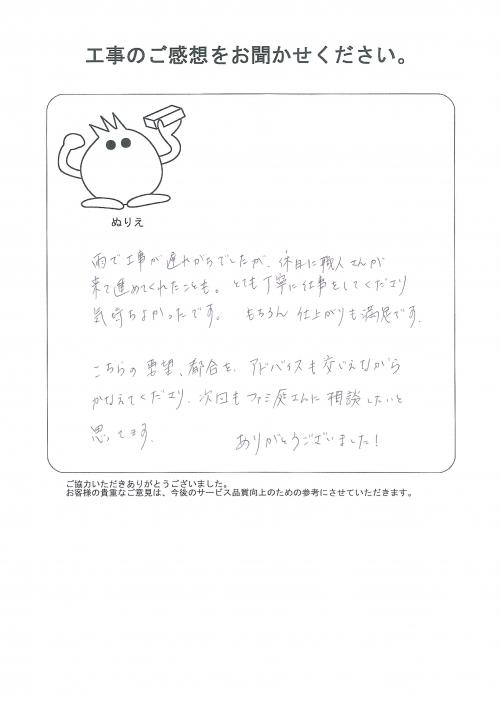 工事のご感想をお聞かせください。
ぬりえ
雨で工事が遅れがちでしたが、休日に職人さんが
来て進めてくれたことも。とても丁寧に仕事をしてくださり
気持ちよかったです。 もちろん 仕上がりも満足です。
こちらの要望、都合を、アドバイスも交じえながら
かなえてくださり、次回もファミ庭さんに相談したいと
思ってます。 ありがとうございました!
ご協力いただきありがとうございました。
お客様の貴重なご意見は、今後のサービス品質向上のための参考にさせていただきます。